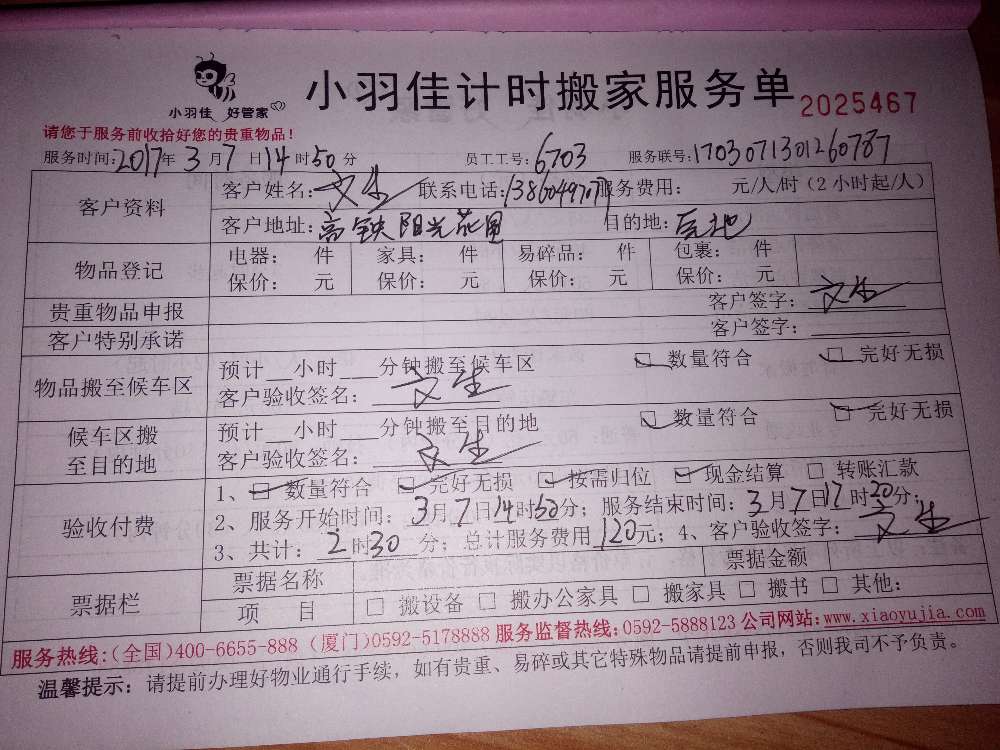 小羽佳 好管家
小羽佳计时搬家服务单 2025467
请您于服务前收拾好您的贵重物品！
服务时间：2017年3月7日14时50分 员工工号：6703 服务联号：170307130126０787
客户资料 客户姓名：文生 联系电话： 服务费用： 元/人/时（2小时起/人）
客户地址：高铁阳光花园 目的地：
物品登记 电器： 件 家具： 件 易碎品： 件 包裹： 件
保价： 元 保价： 元 保价： 元 保价： 元
贵重物品申报 客户签字：文生
客户特别承诺 客户签字：
物品搬至候车区 预计__小时___分钟搬至候车区 ☑ 数量符合 ☑ 完好无损
客户验收签名：文生
候车区搬至目的地 预计__小时___分钟搬至目的地 ☑ 数量符合 ☑ 完好无损
客户验收签名：文生
验收付费 1、☑ 数量符合 ☑ 完好无损 ☑ 按需归位 ☑ 现金结算 □ 转账汇款
2、服务开始时间：3月7日14时50分；服务结束时间：3月7日17时20分；
3、共计：2时30分；总计服务费用120元；4、客户验收签字：文生
票据栏 票据名称 票据金额
项 目 □ 搬设备 □ 搬办公家具 □ 搬家具 □ 搬书 □ 其他：
服务热线：(全国)400-6655-888 (厦门)0592-5178888 服务监督热线：0592-5888123 公司网站：www.xiaoyujia.com
温馨提示：请提前办理好物业通行手续，如有贵重、易碎或其它特殊物品请提前申报，否则我司不予负责。